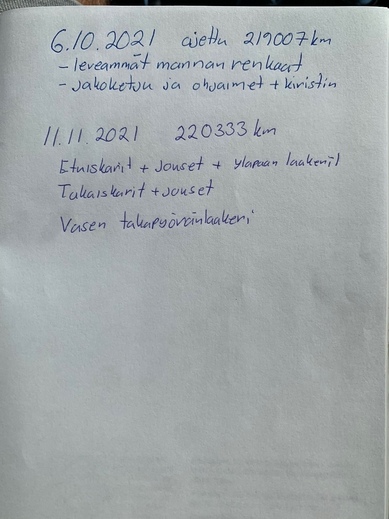 6.10.2021 ajettu 219007km
- leveammät mannan renkaat
- jakoketju ja ohjaimet + kiristin
11.11.2021 220333 km
Etuiskarit + jouset + yläpään laakerit
Takaiskarit + jouset
Vasen takapyöränlaakeri